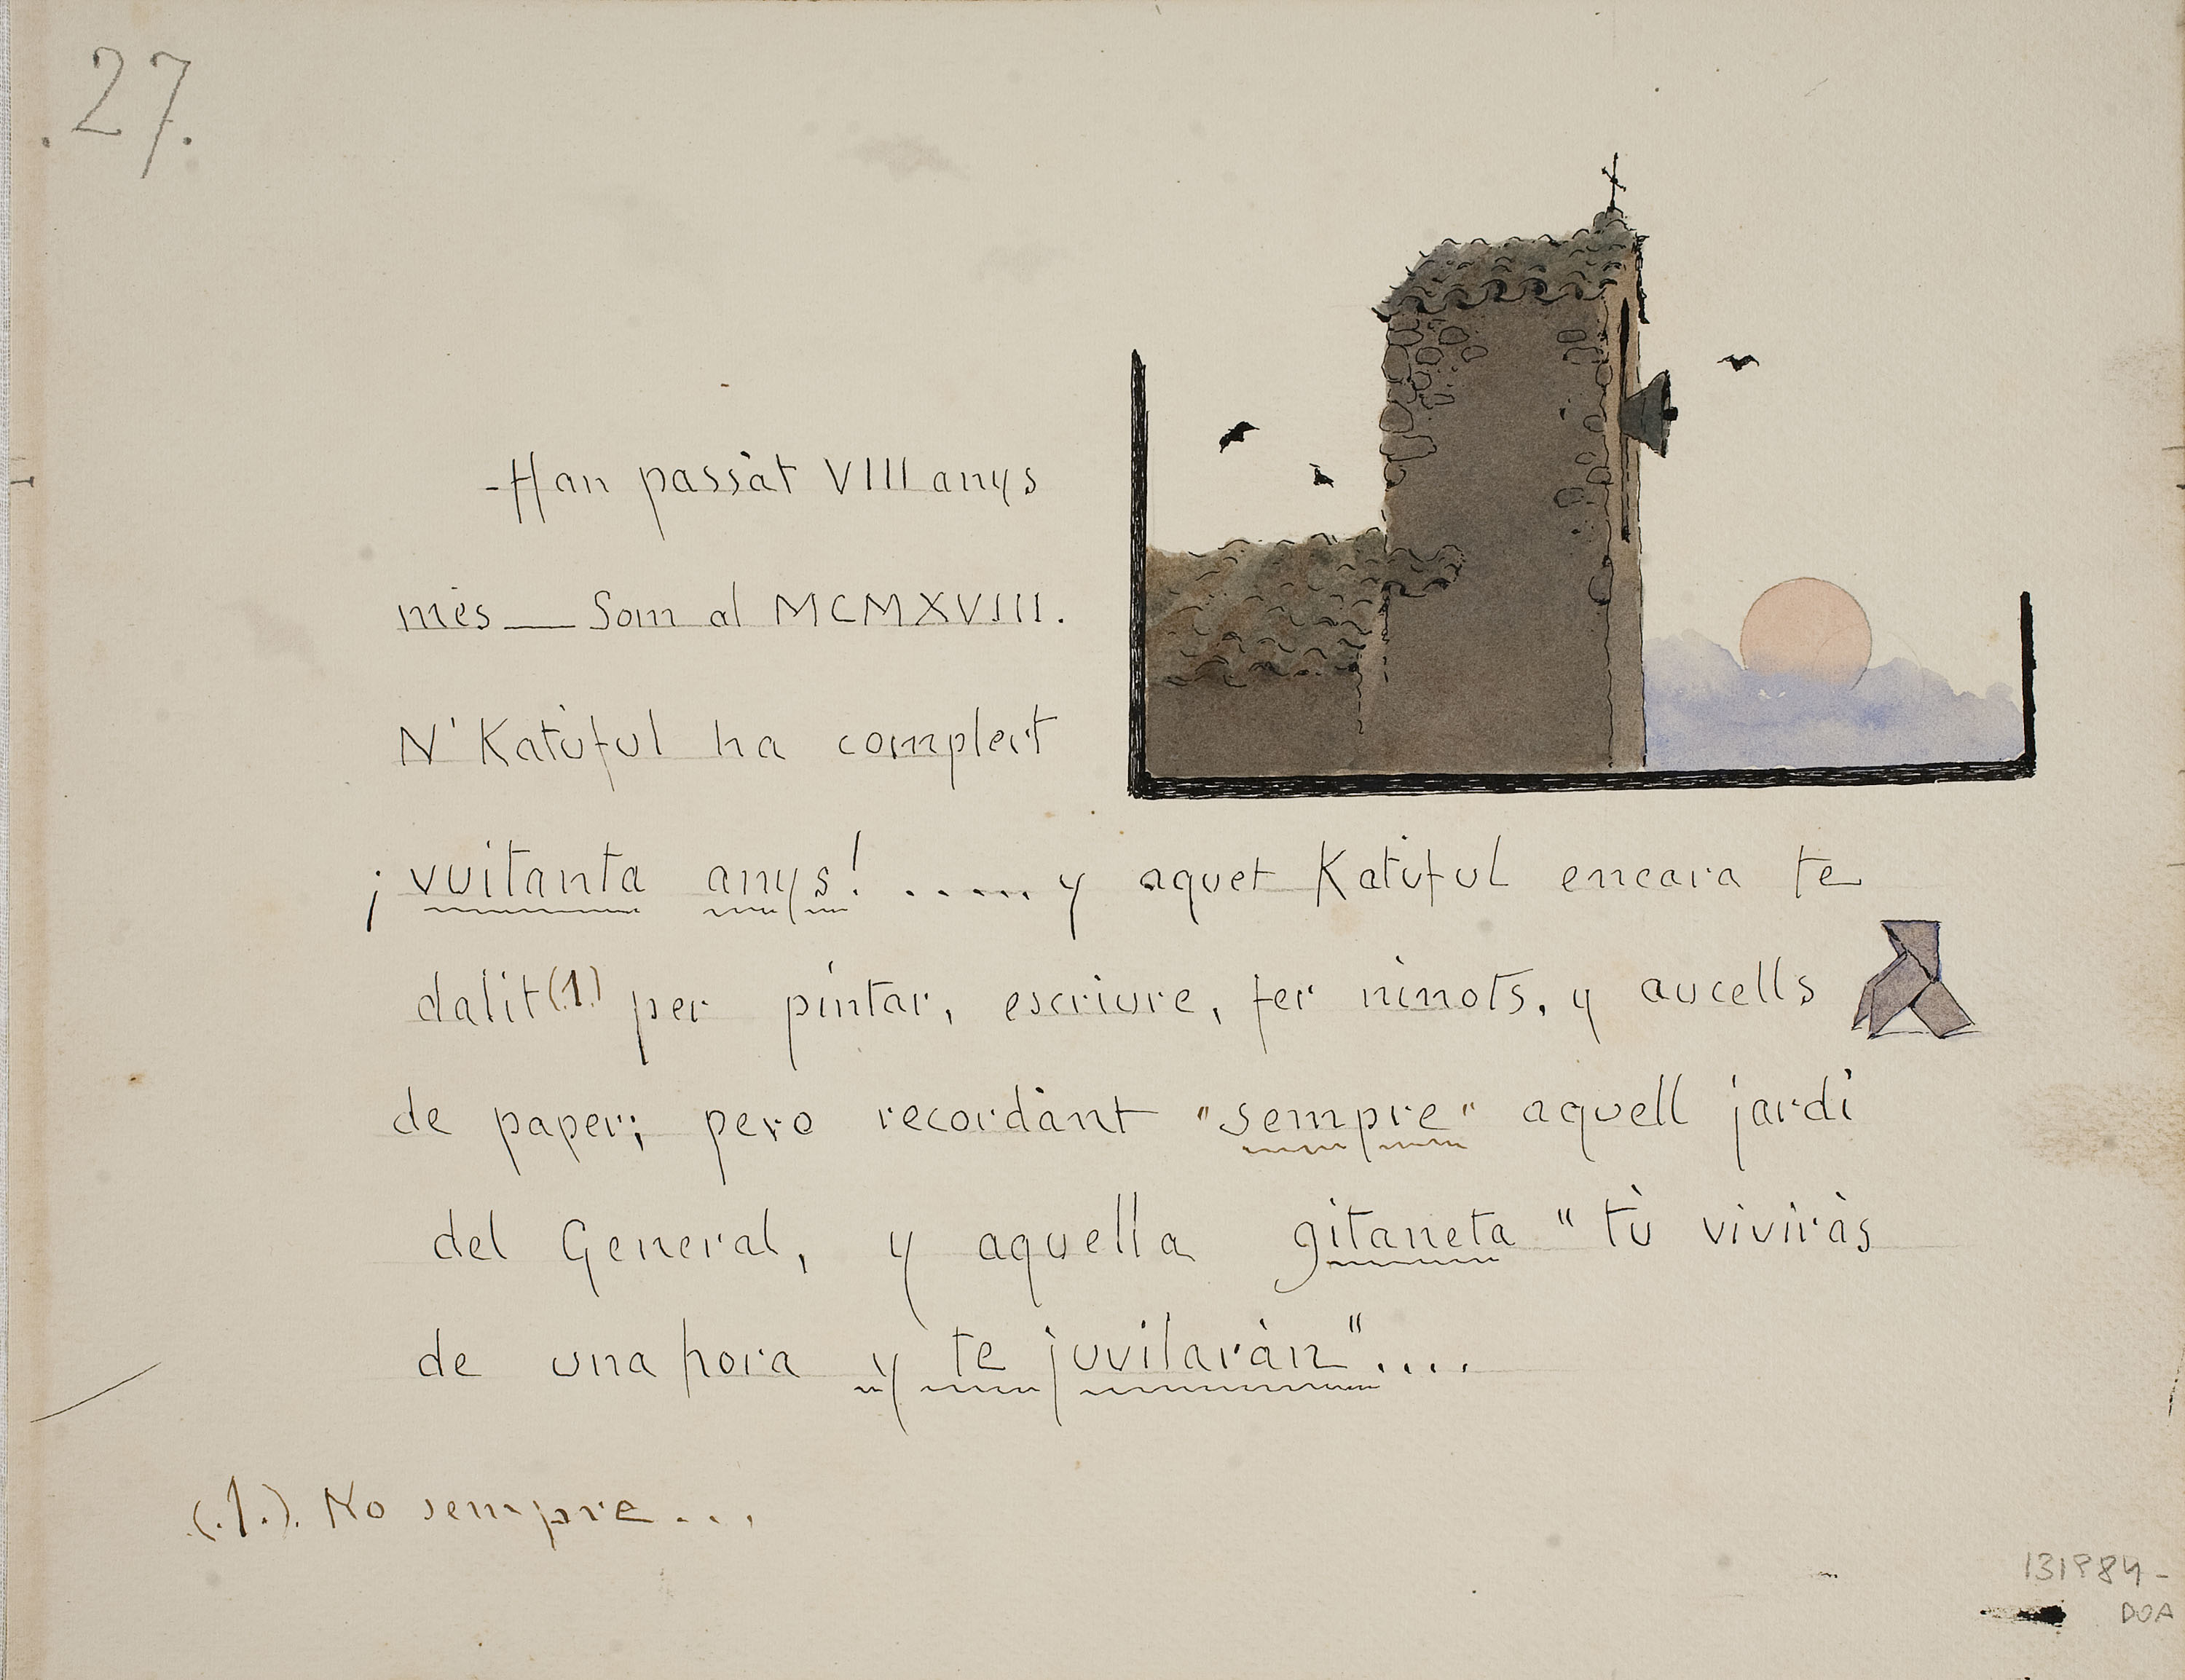 .27.
-Han passàt VIII anys
mès — Som al MCMXVIII.
N'Katúful ha complert
¡vuitanta anys! ..... y aquet Katúful encara te
dalit(1) per pintar, escriure, fer ninots, y aucells
de paper; pero recordànt "sempre" aquell jardí
del General, y aquella gitaneta "tù viviràs
de una hora y te juvilaràn"....
(.1.). No sempre...
131984-
DOA